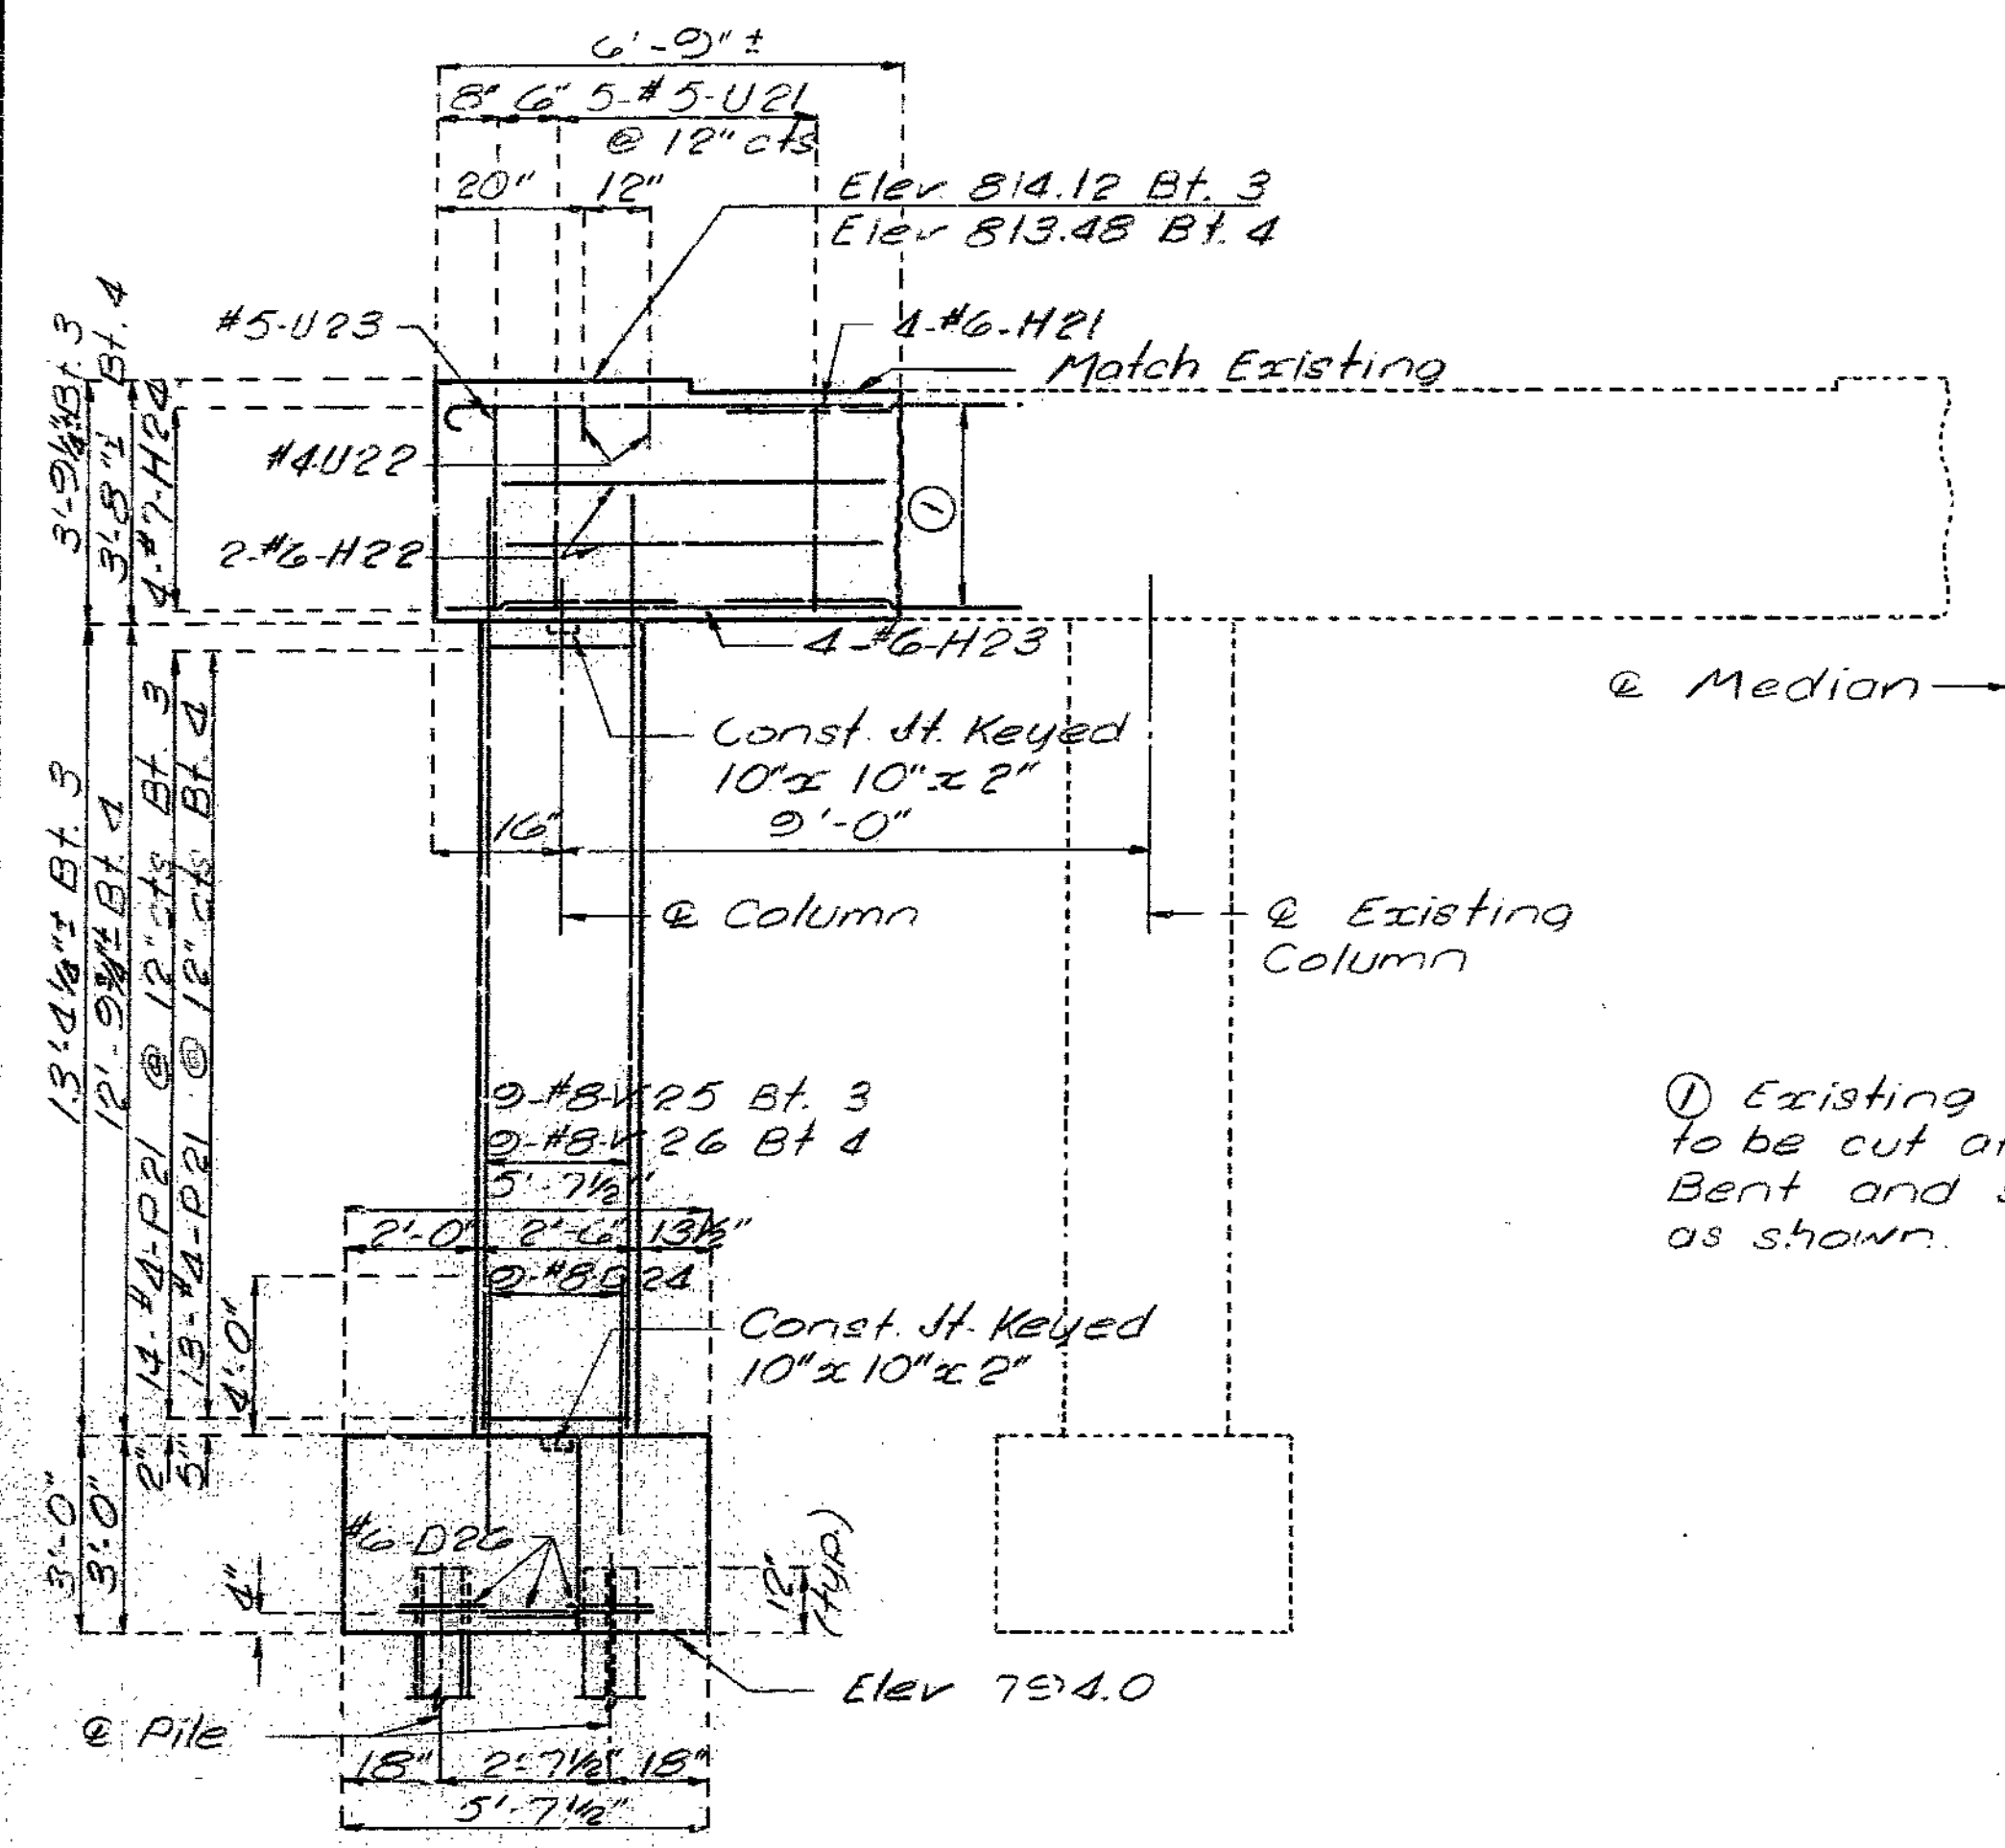 6'-9" ±
8" 6" 5-#5-U21
@ 12" cts
20" 12"
Elev. 814.12 Bt. 3
Elev 813.48 Bt. 4
#5-U23
4-#6-H21
Match Existing
#4-U22
2-#6-H22
①
3'-9¼"± Bt. 3
3'-8"± Bt. 4
4-#7-H24
4-#6-H23
℄ Median
Const. Jt. Keyed
10" x 10" x 2"
16" 9'-0"
℄ Column
℄ Existing
Column
13'-4⅛"± Bt. 3
12'-9¾"± Bt. 4
14-#4-P21 @ 12" cts Bt. 3
13-#4-P21 @ 12" cts Bt. 4
9-#8-V25 Bt. 3
9-#8-V26 Bt 4
5'-7½"
2'-0" 2'-6" 13½"
9-#8-D24
4'-0"
Const. Jt. Keyed
10" x 10" x 2"
① Existing
to be cut
Bent and
as shown.
2"
5"
3'-0"
3'-0"
#6-D26
4"
12"
(typ.)
Elev 794.0
℄ Pile
18" 2'-7½" 18"
5'-7½"